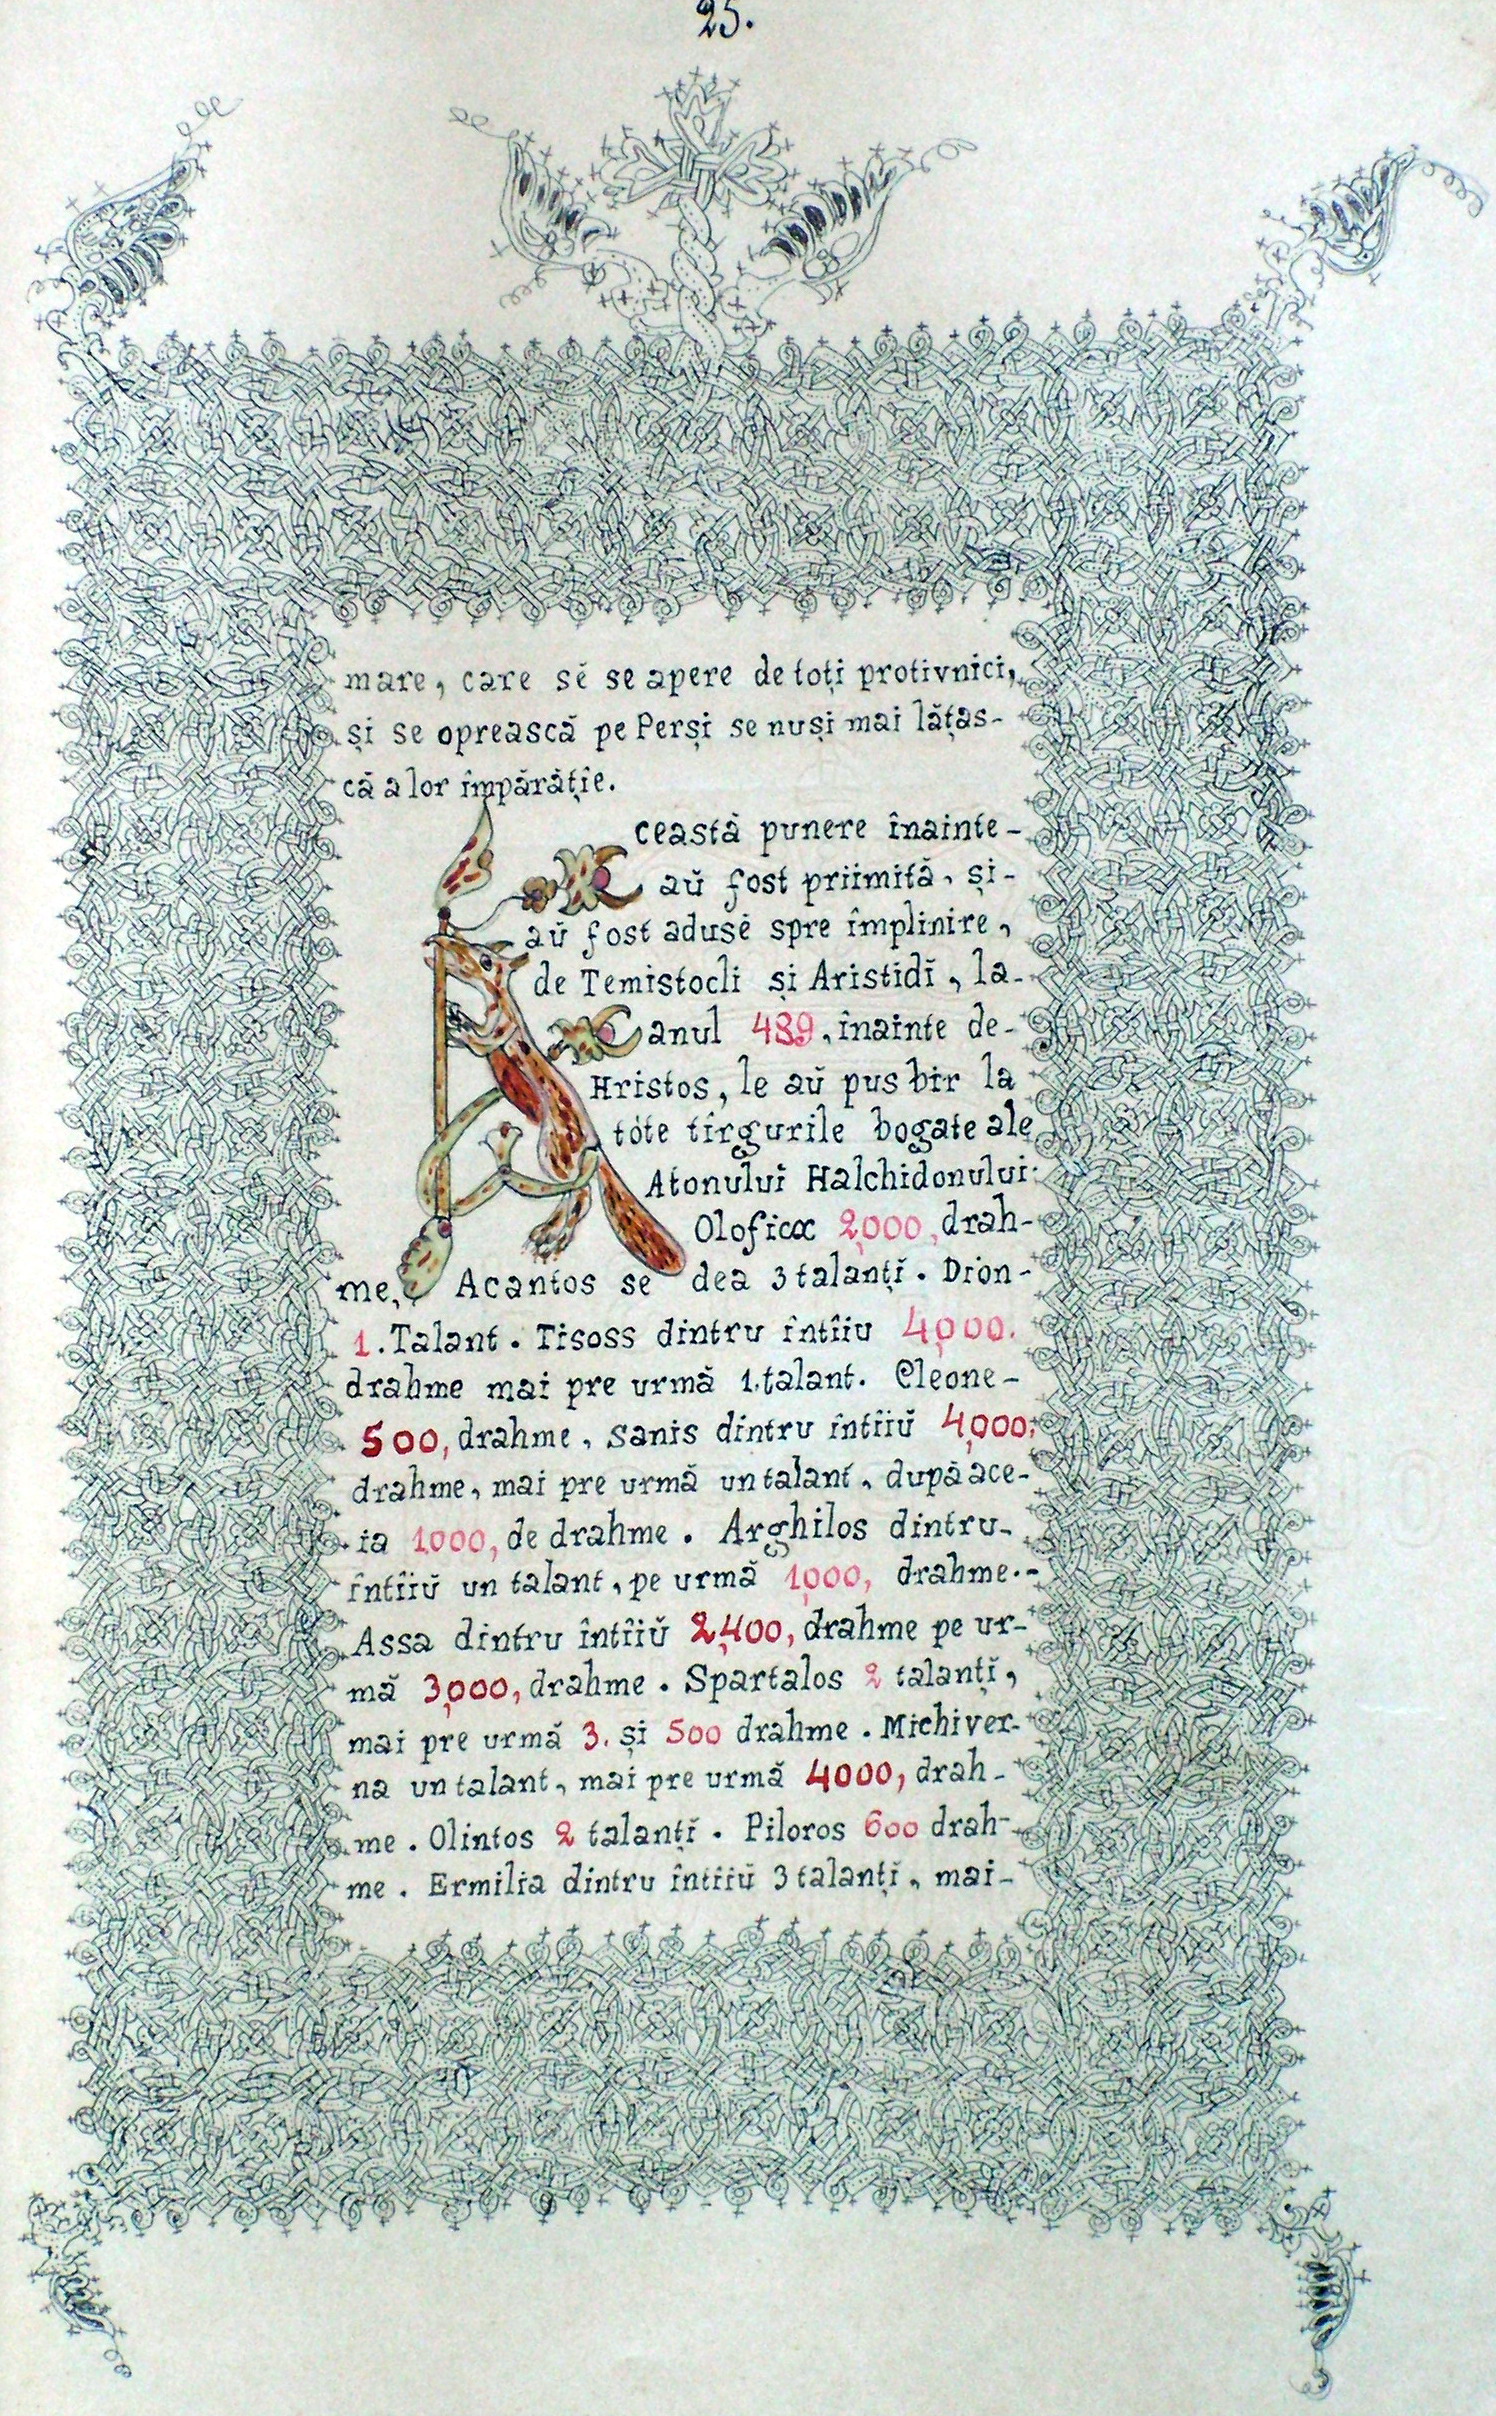 25.
mare, care sĕ se apere de toți protivnici,
și se oprească pe Perși se nuși mai lățas-
că a lor împărăție.
Această punere înainte-
aŭ fost priimită, și-
aŭ fost adusĕ spre împlinire,
de Temistocli și Aristidĭ, la-
anul 489, înainte de-
Hristos, le aŭ pus bir la
tóte tîrgurile bogate ale
Atonuluĭ Halchidonuluĭ:
Olofica 2,000, drah-
me, Acantos se dea 3 talanțĭ. Dion-
1. Talant. Tisoss dintru întîiu 4,000.
drahme mai pre urmă 1. talant. Cleone-
500, drahme, Sanis dintru întîiŭ 4,000,
drahme, mai pre urmă un talant, după ace-
ia 1000, de drahme. Arghilos dintru-
întîiŭ un talant, pe urmă 1,000, drahme.-
Assa dintru întîiŭ 2,400, drahme pe ur-
mă 3,000, drahme. Spartalos 2 talanțĭ,
mai pre urmă 3. și 500 drahme. Michiver-
na un talant, mai pre urmă 4000, drah-
me. Olintos 2 talanțĭ. Piloros 600 drah-
me. Ermilia dintru întîiŭ 3 talanțĭ, mai-